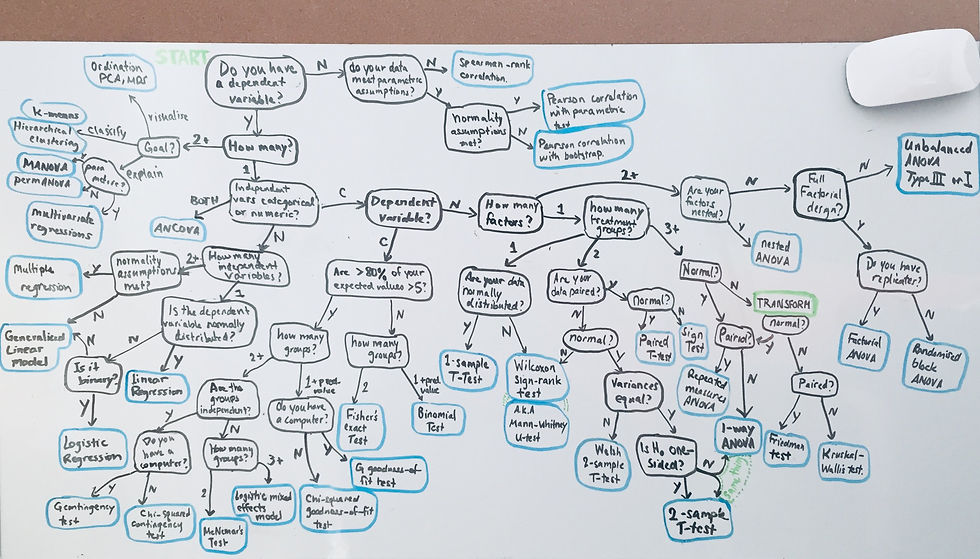 START
Do you have
a dependent
variable?
N
do your data
meet parametric
assumptions?
N
Spearman-rank
correlation.
Y
normality
assumptions
met?
Y
Pearson correlation
with parametric
test
N
Pearson correlation
with bootstrap.
Y
How many?
2+
Goal?
visualise
Ordination
PCA, MDS
classify
K-means
Hierarchical
clustering
explain
para
metric?
MANOVA
permANOVA
N
Y
multivariate
regressions
1
Independent
vars categorical
or numeric?
BOTH
ANCOVA
N
How many
independent
variables?
2+
normality
assumptions
met?
Y
Multiple
regression
N
Generalized
Linear
model
1
Is the dependent
variable normally
distributed?
N
Is it
binary?
N
Y
Linear
Regression
Y
Logistic
Regression
C
Dependent
Variable?
C
Are >80% of your
expected values >5?
Y
how many
groups?
2+
Are the
groups
independent?
Y
Do you
have a
computer?
Y
G contingency
test
N
Chi-squared
contingency
test
N
How many
groups?
2
McNemar's
Test
3+
Logistic mixed
effects
model
1+pred.
value
Do you have
a computer?
Y
G goodness-of-
fit test
N
Chi-squared
goodness-of-fit
test
N
how many
groups?
2
Fisher's
exact
Test
1+pred
value
Binomial
Test
N
How many
factors?
1
how many
treatment
groups?
1
Are your data
normally
distributed?
Y
1-sample
T-Test
N
Wilcoxon
Sign-rank
test
A.K.A
Mann-Whitney
U-test
2
Are your
data paired?
Y
normal?
Y
Paired
T-test
N
Sign
Test
N
normal?
N
Y
Variances
equal?
N
Welsh
2-sample
T-Test
Y
Is H₀ one-
sided?
N
Y
2-sample
T-Test
Same thing
3+
Normal?
Y
Paired?
Y
Repeated
measures
ANOVA
N
1-way
ANOVA
N
TRANSFORM
normal?
Y
N
Paired?
Y
Friedman
test
N
Kruskal-
Wallis test.
2+
Are your
factors
nested?
Y
nested
ANOVA
N
Full
Factorial
design?
N
Unbalanced
ANOVA
Type III or I
Y
Do you have
replicates?
Y
Factorial
ANOVA
N
Randomised
block
ANOVA